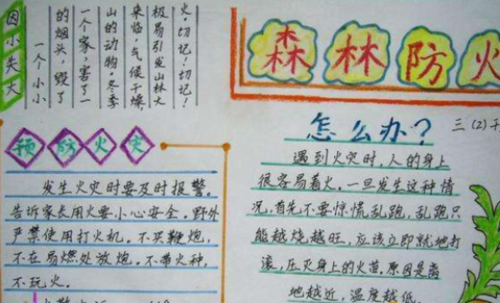 因小失大
一个小小
的烟头，毁了
一个家，害了一
山的动物。冬季
来临，气候干燥，
极易引发山林火
火，切记！切记！
森林防火
三(2)
预防火灾
发生火灾时要及时报警。
告诉家长用火要小心安全。野外
严禁使用打火机。不买鞭炮，
不在易燃处放炮。不带火种，
不玩火。
怎么办？
遇到火灾时，人的身上
很容易着火。一旦发生这种情
况，首先不要惊慌乱跑，乱跑只
能越烧越旺，应该立即就地打
滚，压灭身上的火苗，原因是离
地越近，温度越低。